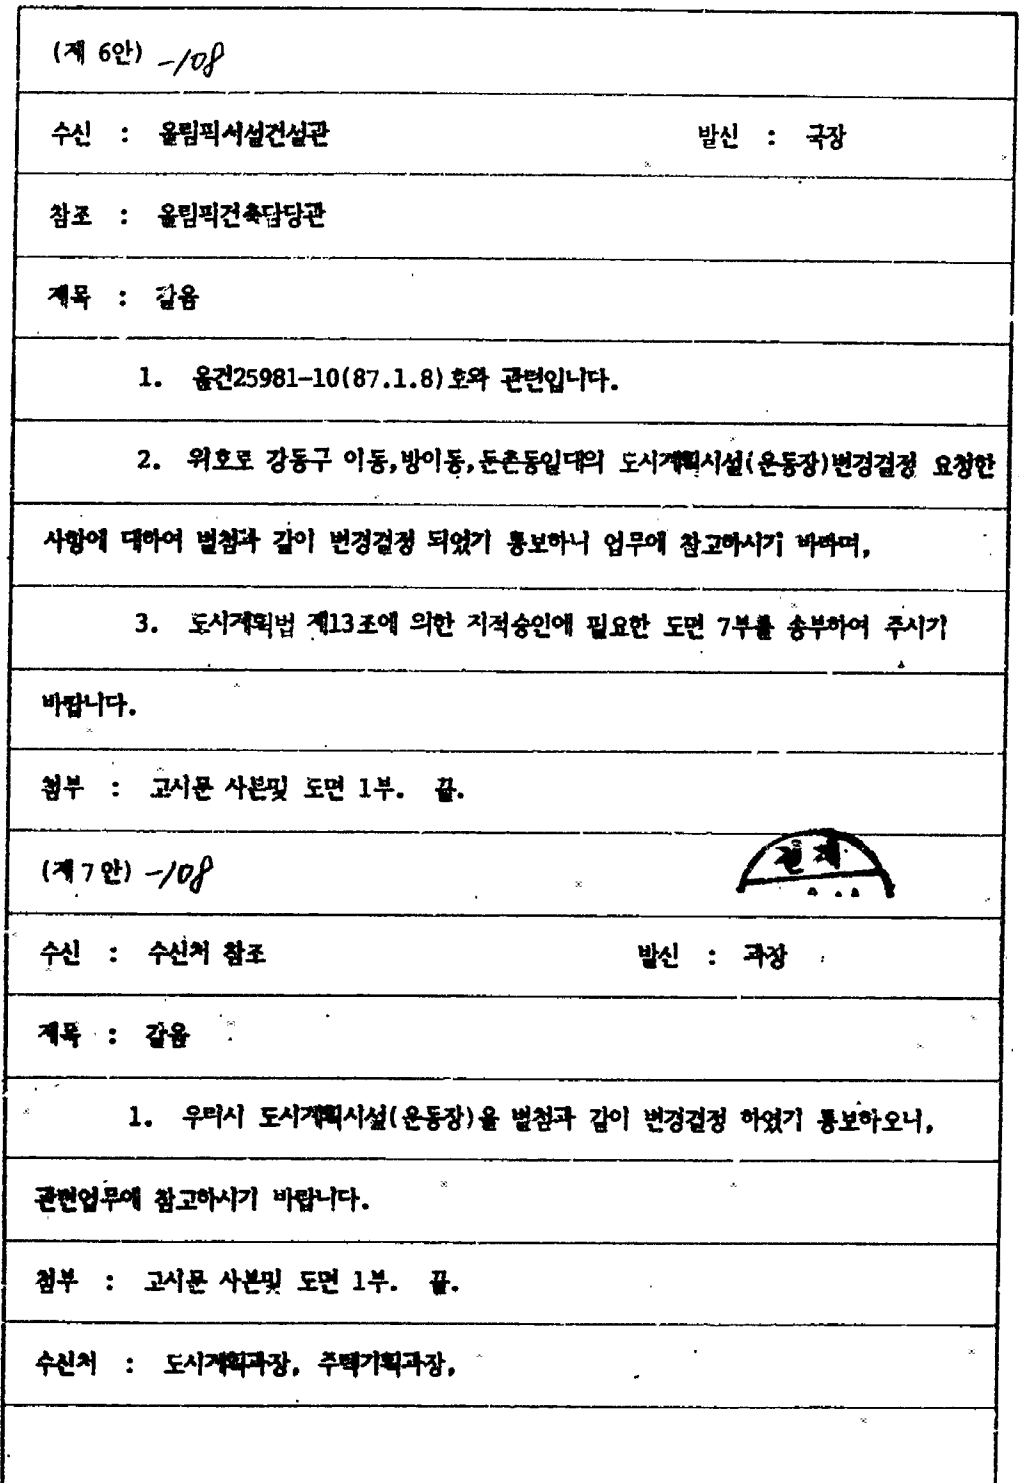 (제 6안) -108
수신 : 올림픽시설건설관 발신 : 국장
참조 : 올림픽건축담당관
제목 : 같음
1. 올건25981-10(87.1.8)호와 관련입니다.
2. 위호로 강동구 이동,방이동,둔촌동일대의 도시계획시설(운동장)변경결정 요청한
사항에 대하여 별첨과 같이 변경결정 되었기 통보하니 업무에 참고하시기 바라며,
3. 도시계획법 제13조에 의한 지적승인에 필요한 도면 7부를 송부하여 주시기
바랍니다.
첨부 : 고시문 사본및 도면 1부. 끝.
(제 7 안) -108
수신 : 수신처 참조 발신 : 과장
제목 : 같음
1. 우리시 도시계획시설(운동장)을 별첨과 같이 변경결정 하였기 통보하오니,
관련업무에 참고하시기 바랍니다.
첨부 : 고시문 사본및 도면 1부. 끝.
수신처 : 도시계획과장, 주택기획과장,